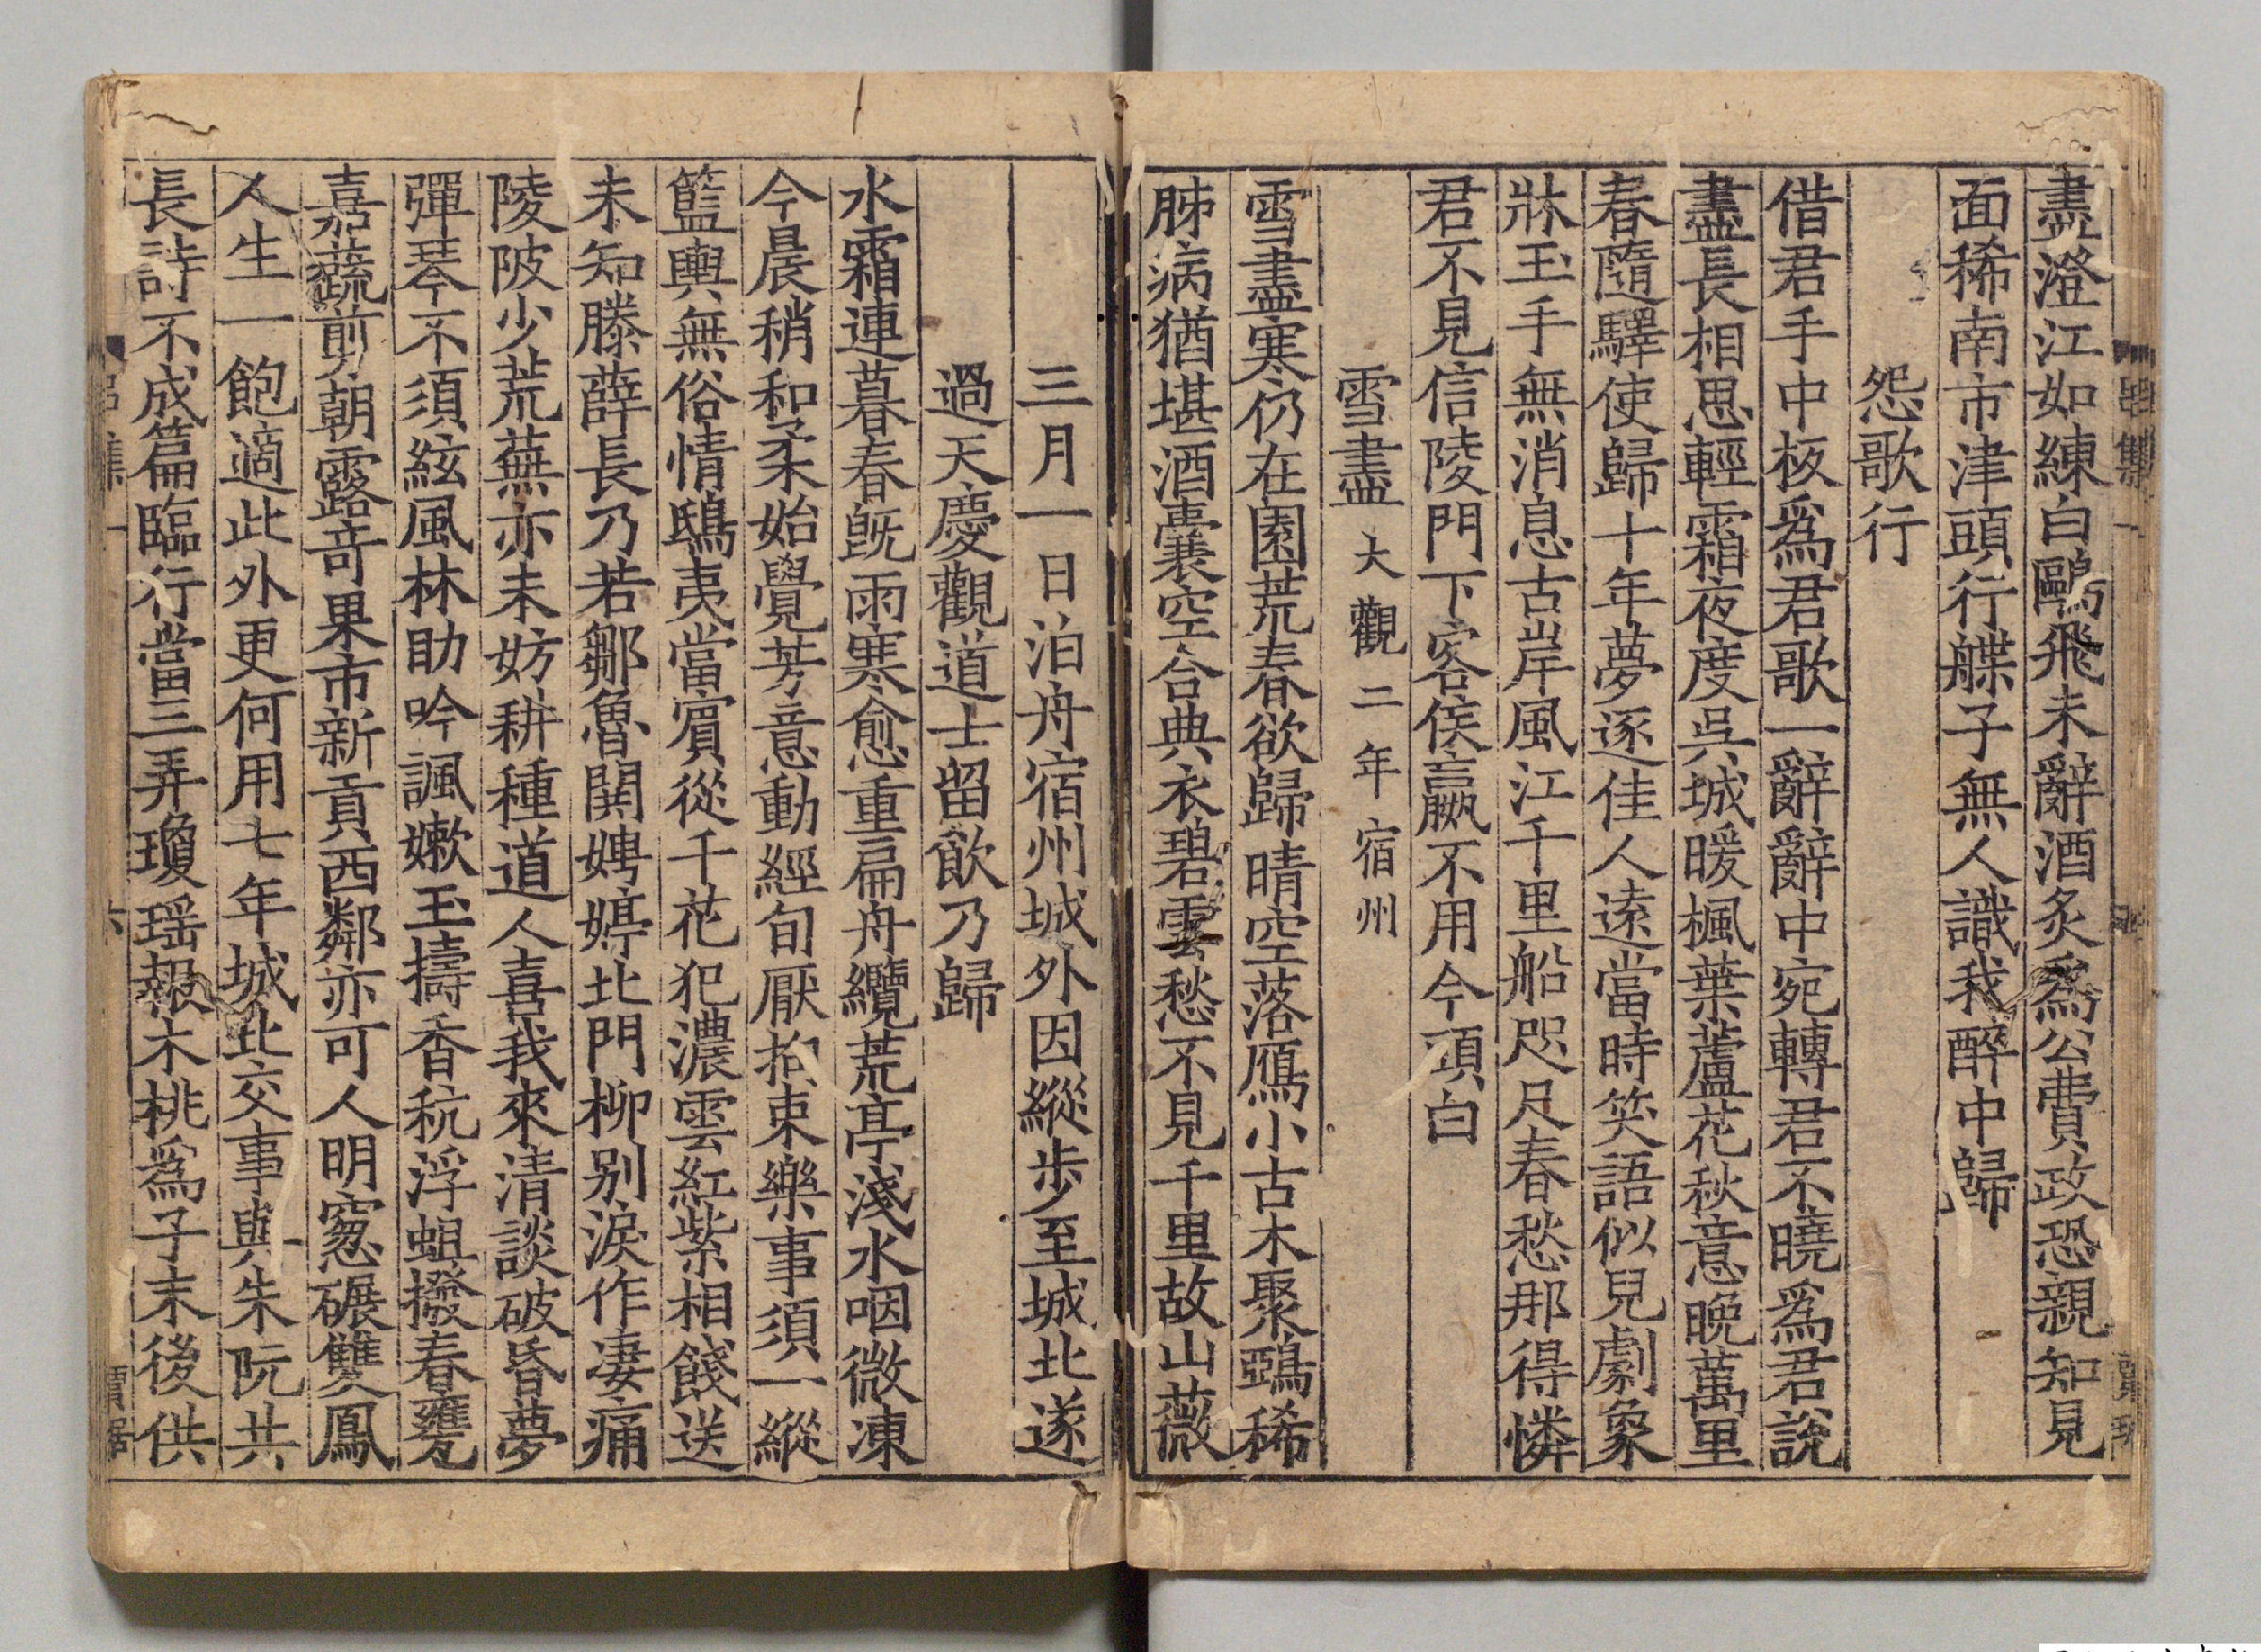 盡澄江如練白鷗飛未辭酒炙爲公費政恐親知見
面稀南市津頭行艓子無人識我醉中歸
怨歌行
借君手中板爲君歌一辭辭中宛轉君不曉爲君說
盡長相思輕霜夜度吳城暖楓葉蘆花秋意晚萬里
春隨驛使歸十年夢逐佳人遠當時笑語似兒劇象
牀玉手無消息古岸風江千里船咫尺春愁那得憐
君不見信陵門下客侯嬴不用今頭白
雪盡大觀二年宿州
雪盡寒仍在園荒春欲歸晴空落鴈小古木聚鵶稀
肺病猶堪酒囊空合典衣碧雲愁不見千里故山薇
三月一日泊舟宿州城外因縱步至城北遂
過天慶觀道士留飲乃歸
水霜連暮春旣雨寒愈重扁舟纜荒亭淺水咽微凍
今晨稍和柔始覺芳意動經旬厭拘束樂事須一縱
籃輿無俗情鴟夷當賓從千花犯濃雲紅紫相餞送
未知滕薛長乃若鄒魯閧娉婷北門柳別淚作凄痛
陵陂少荒蕪亦未妨耕種道人喜我來清談破昏夢
彈琴不須絃風林助吟諷嫰玉擣香秔浮蛆撥春甕
嘉蔬剪朝露竒果市新貢西鄰亦可人明窻碾雙鳳
人生一飽適此外更何用七年城北交事與朱阮共
長詩不成篇臨行當三弄瓊瑶報木桃爲子末後供